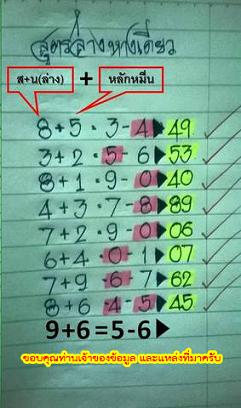 สูตรล่างทางเดียว
ส+น(ล่าง) + หลักหมื่น
8+5=3-4▶49
3+2=5-6▶53
8+1=9-0▶40
4+3=7-8▶89
7+2=9-0▶06
6+4=0-1▶07
7+9=6-7▶62
8+6=4-5▶45
9+6=5-6▶
ขอบคุณท่านเจ้าของข้อมูล และแหล่งที่มาครับ